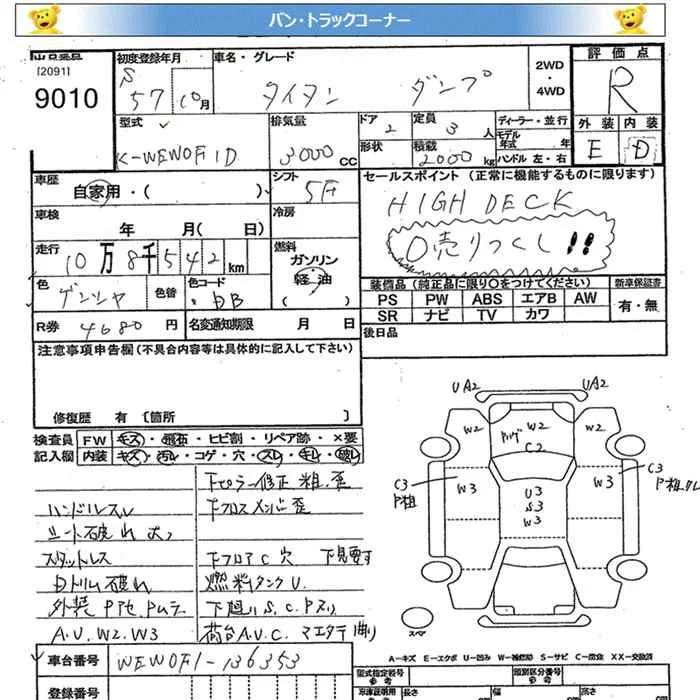 バン・トラックコーナー
[2091]
9010
初度登録年月
S 57 10月
車名・グレード
タイタン ダンプ
2WD
・
4WD
評価点
R
外装 内装
E D
型式
K-WEWOF1D
排気量
3000 CC
ドア
2
定員
3 人
形状
積載
2000 kg
ディーラー・並行
モデル年式 年
ハンドル 左・右
車歴
自家用・( )
シフト
5F
冷房
車検
年 月( 日)
走行
10万8千542km
燃料
ガソリン
軽油
( )
色
ゲンシャ
色替
色コード
DB
R券 4680 円
名変通知期限 月 日
セールスポイント (正常に機能するものに限ります)
HIGH DECK
○売りつくし!!
装備品(純正品に限り○をつけてください)
新車保証書
PS PW ABS エアB AW
SR ナビ TV カワ
有・無
後日品
注意事項申告欄(不具合内容等は具体的に記入して下さい)
修復歴 有 〔箇所 〕
検査員記入欄
FW キズ・飛石・ヒビ割・リペア跡・×要
内装 キズ・汚レ・コゲ・穴・スレ・キレ・破レ
ハンドルスレ
シート破れ大
スタットレス
Dトリム破れ
A.U.W2.W3
下ピラー修正 粗.歪
下クロスメンバー歪
下フロアC穴
燃料タンクU.
下廻りS.C.Pヌリ
荷台A.U.C.
UA2 UA2
W2 W2 W2
C2
C3 C3
W3 W3
U3
S3
W3
スペア
A-キズ E-エクボ U-凹み W-補修跡 S-サビ C-腐食 XX-交換済
車台番号 WEWOF1-136353
登録番号
型式指定番号
参考
類別区分番号
参考
長さ
幅
高さ